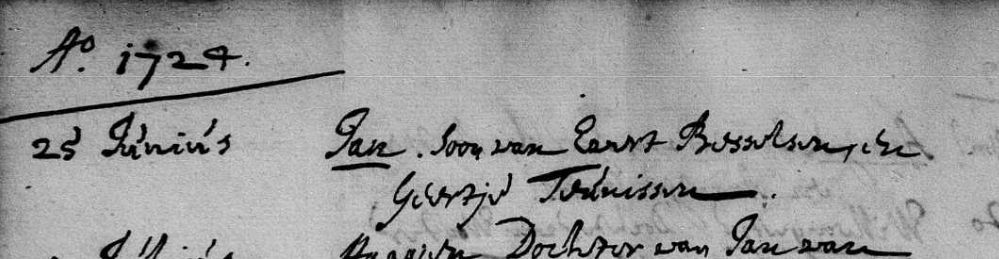 A.º 1724.
25 Júniús Jan. soon van Eanst Besselsen, en
Geertje Teúnissen.
Júliús Dochter van Jan van